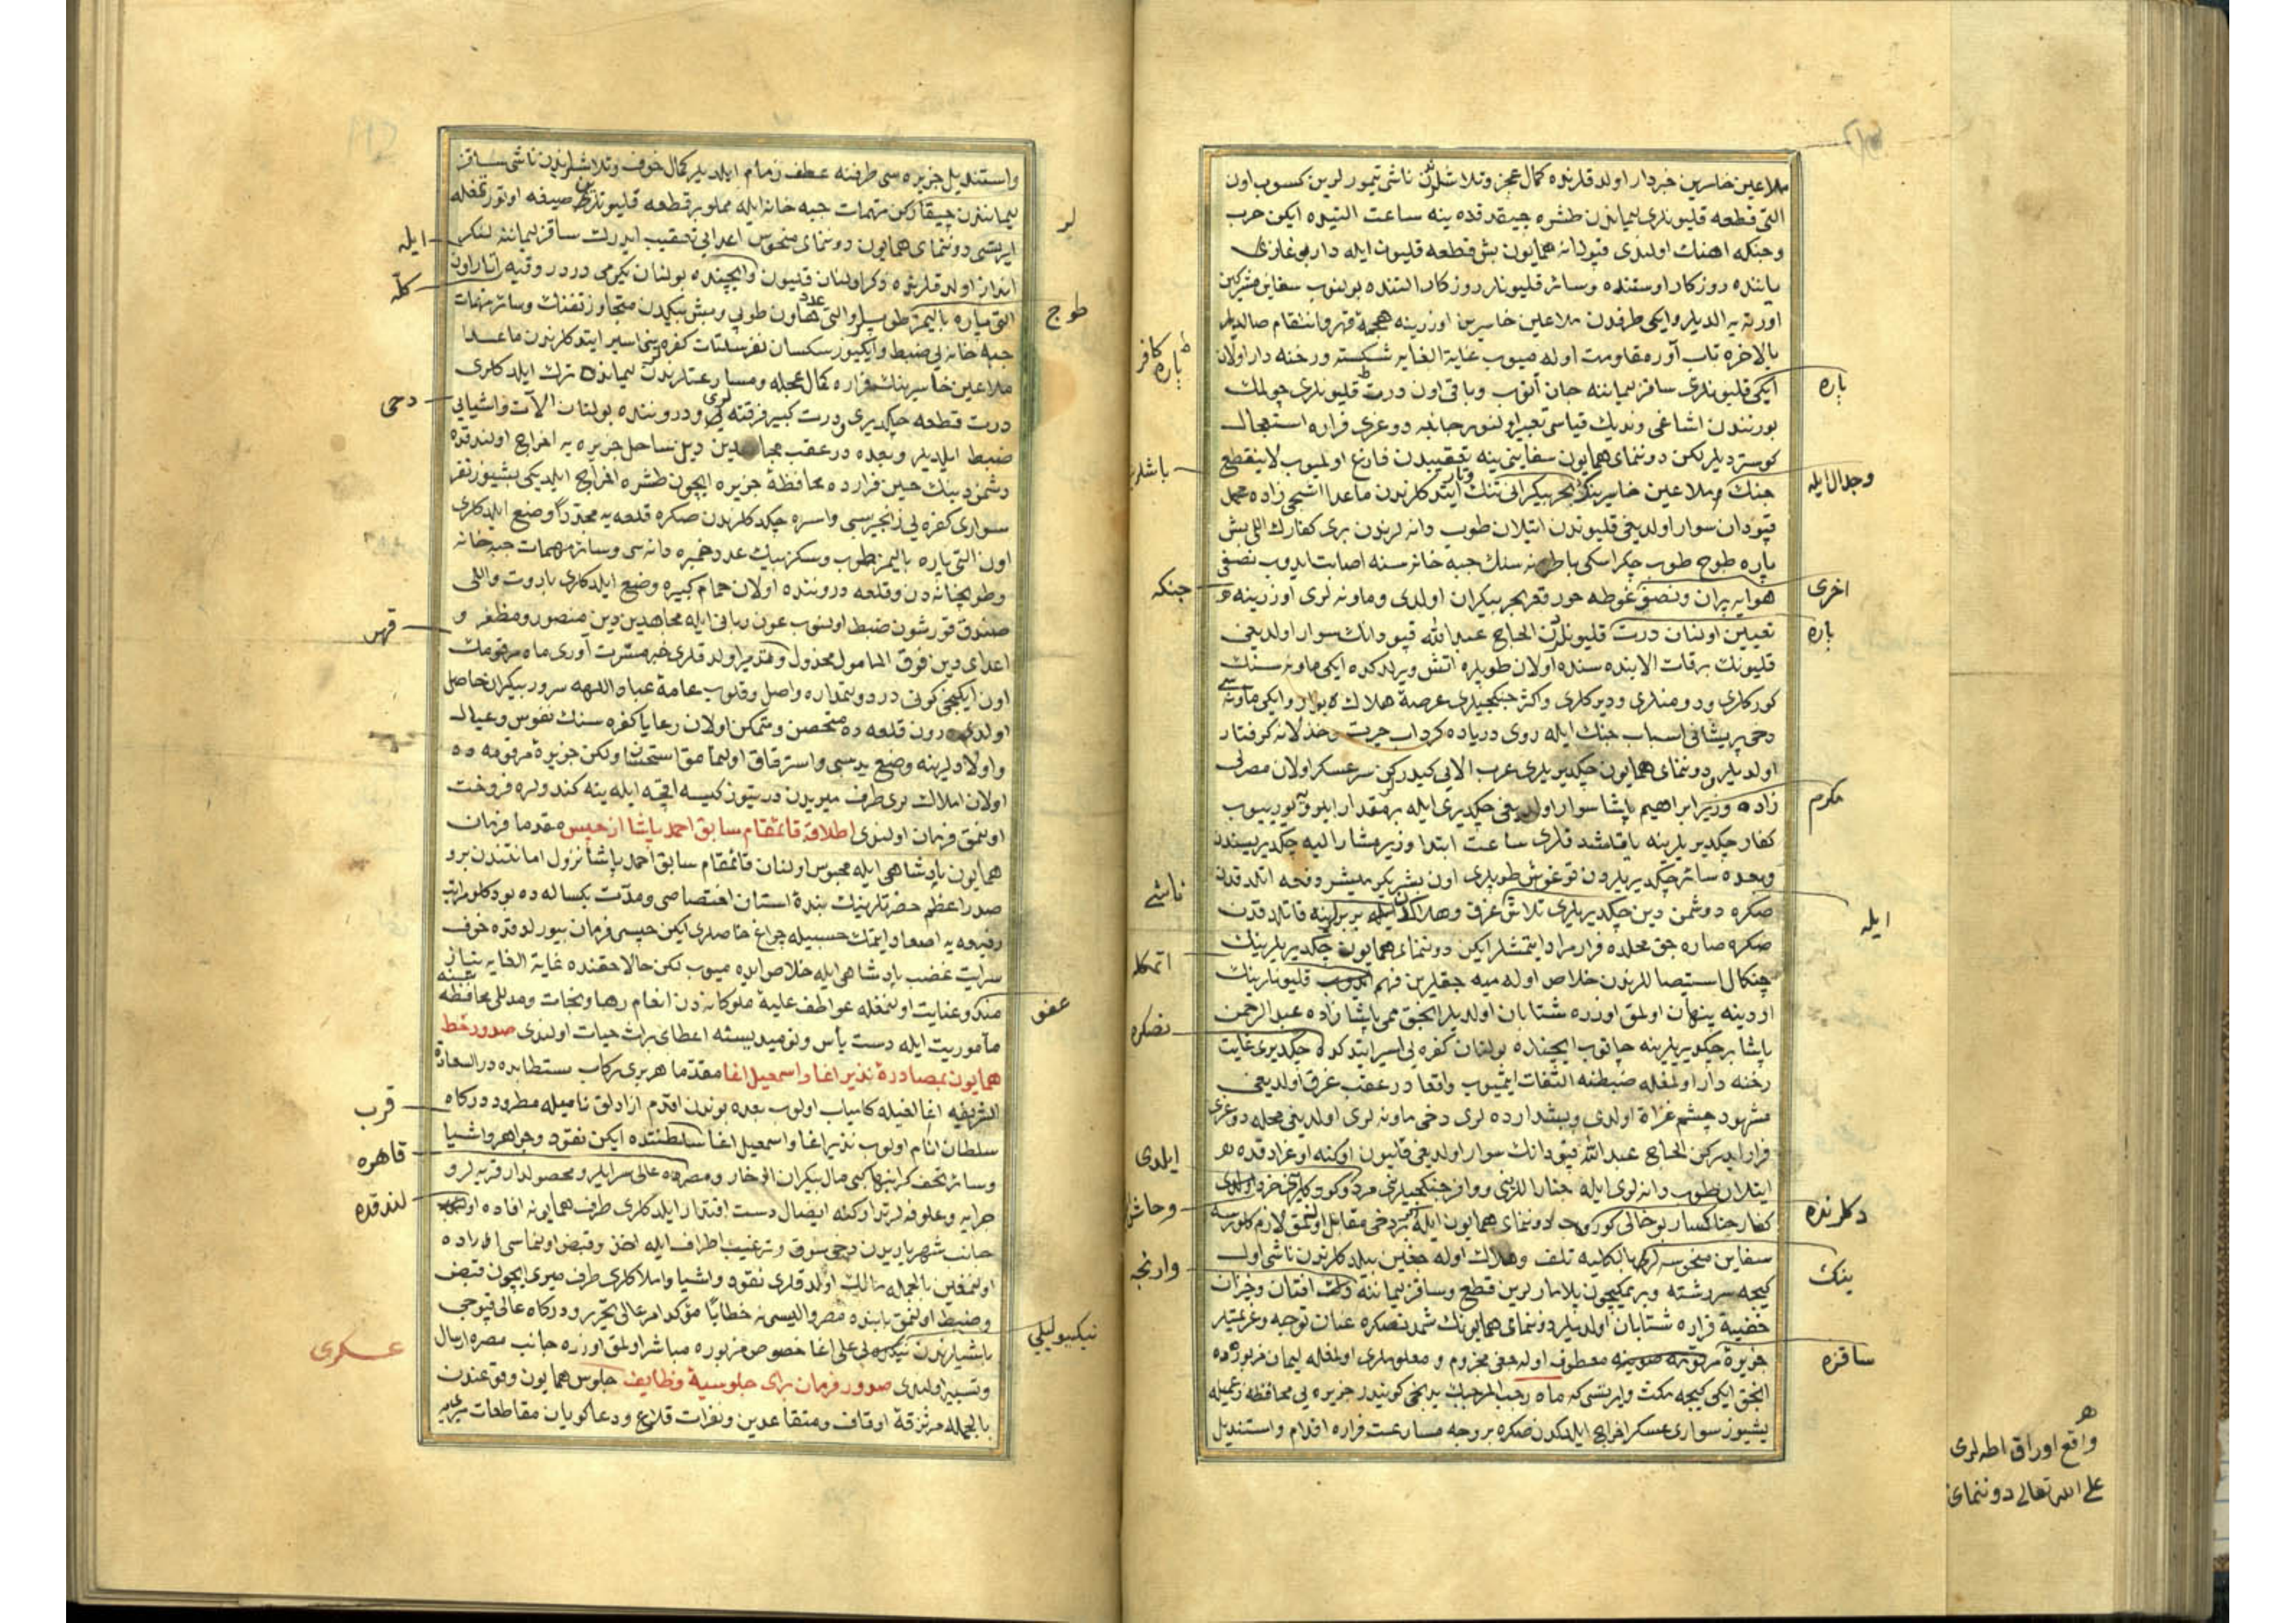 ملاعین خاسرین خبردار اولدقلرنده کمال عجز وتلاشلرندن ناشی تیمورلرین کسوب اون
التی قطعه قلیونلری لیماندن طشره چیقدقده ینه ساعت التیده ایکن حرب
وجنکه اهنك اولندی قپودانه همایون بش قطعه قلیون ایله دار بوغازی
یاننده روزکار اوستنده وسائر قلیونلر روزکار التنده بولنوب سفاین مشرکین
اورته یه الدیلر وایکی طرفدن ملاعین خاسرین اوزرینه هجمۀ قهر وانتقام صالدیلر
بالاخره تاب آور مقاومت اوله میوب غایة الغایه شکسته ورخنه دار اولان
ایکی قلیونلری ساقز لیماننه جان آتوب وباقی اون درت قلیونلری چولمك
بورنندن اشاغی وندیك قیاسی تعبیر اولنور جانبه دوغری فراره استعجال
کوستردیلر لکن دوننمای همایون سفاینی ینه تعقیبدن فارغ اولمیوب لاینقطع
جنك وملاعین خاسرینك ایتدکلرندن ماعدا اشجی زاده محمد
قپودان سوار اولدیغی قلیوندن اتیلان طوب دانه لرندن بری کفارك اللی بش
پاره طوج طوب چکر اسکی باطرونه سنك جبه خانه سنه اصابت ایدوب نصفی
هوایه پران ونصفی غوطه خور قعر بحر بیکران اولدی وماونه لری اوزرینه
تعیین اولنان درت قلیونلردن الحاج عبدالله قپودانك سوار اولدیغی
قلیونك برقات الابنده سنده اولان طوپلره اتش ویردکده ایکی ماونه سنك
کورکلری ودومنلری ودیرکلری واکثر جنکجیلری عرصۀ هلاك وایکی ماونه سی
دخی پریشانی اسباب جنك ایله روی دریاده کرداب حیرت وخذلانه کرفتار
اولدیلر ودوننمای همایون چکدیریلری عرب الابی کیدرکن سرعسکر اولان مصرلی
زاده وزیر ابراهیم پاشا سوار اولدیغی چکدیری ایله برمقدار ایلرو
کفار چکدیریلرینه یاقلشدقلری ساعت ابتدا وزیر مشار الیه چکدیریسندن
وبعده سائر چکدیریلردن توغوش طوپلری اون بشر یکرمیشر دفعه اتلدقدن
صکره دوشمن دین چکدیریلری تلاش غرق وهلاك ایله بربرلرینه قاتلدقدن
صکره صاره جق محلده فرار مراد ایتمشلر ایکن دوننمای همایون چکدیریلرینك
چنکال استیصاللرندن خلاص اوله میه جقلرین فهم ایدوب قلیونلرینك
اردینه پنهان اولمق اوزره شتابان اولدیلر انجق ممی پاشا زاده عبدالرحمن
پاشا برچکدیریلرینه چاتوب ایچنده بولنان کفره یی اسیر ایتدکده چکدیری غایت
رخنه دار اولمغله ضبطنه التفات ایتمیوب واقعا درعقب غرق اولدیغی
مشهود چشم غزاة اولدی وپیشدارده لری دخی ماونه لری اولدیغی محله دوغری
فرار ایدرکن الحاج عبدالله قپودانك سوار اولدیغی قلیون اوکنه اوغرادقده
اتیلان طوب دانه لری ایله
کفار خاکسار بوحالی کوروجه دوننمای همایون ایله بردخی مقابل اولنمق لازم کلورسه
سفاین منحوسه لری بالکلیه تلف وهلاك اوله جغین بیلدکلرندن ناشی اول
کیجه سررشته وبرمکیچون پلامارلرین قطع وساقز لیماننه افتان وخیزان
خفیة فراره شتابان اولدیلر دوننمای همایونك شمدنصکره عنان توجه وعزیمتلری
جزیرۀ معطوف اوله جغی مجزوم ومعلوملری اولمغله لیمان مزبورده
انجق ایکی کیجه مکث وایرتسی که ماه رجب المرجبك یدنجی کونیدر جزیره یی محافظه زعمیله
بشیوز سواری عسکر اخراج ایلدکدن صکره بروجه مسارعت فراره اقدام واستندیل
پاره کافر
پاره
باشلر
وجدال ایله
جنکه
اخری
پاره
مکرم
ناشی
ایله
اتمکله
نصکره
ایلدی
دکلرنده
وارنجه
ینك
ساقزه
واقع اوراق اطه لری
علی الله تعالی دوننمای
واستندیل جزیره سی طرفنه عطف زمام ایلدیلر کمال خوف وتلاشلرندن ناشی ساقز
لیماننزن چیقارکن مهمات جبه خانه ایله مملو برقطعه قلیونلری صیغه اوتورتمغله
ایرتسی دوننمای همایون دوننمای منحوس اعدایی تعقیب ایدرك ساقز لیماننه لنکر
انداز اولدقلرنده ذکر اولنان قلیون وایچنده بولنان یکرمی درر وقیه اتار اون
التی پاره بالیمز طوپلر والتی عدد هاون طوپی وبش بیکدن متجاوز تفنك وسائر مهمات
جبه خانه یی ضبط وایکیوز سکسان نفر سلتات کفره یی اسیر ایتدکلرندن ماعدا
ملاعین خاسرینك فراره کمال عجله ومسارعتلرندن لیمانده ترك ایلدکلری
درت قطعه چکدیری ودرت کبیر فرقته لری ودروننده بولنان الات واشیایی
ضبط ایلدیلر وبعده درعقب مجاهدین دین ساحل جزیره یه اخراج اولندقده
دشمن دینك حین فرارده محافظۀ جزیره ایچون طشره اخراج ایلدیکی بشیوز نفر
سواری کفره یی زنجیر سبی واسره چکدکلرندن صکره قلعه یه مجددا وضع ایلدکلری
اون التی پاره بالیمز طوب وسکز بیك عدد خمبره دانه سی وسائر مهمات جبه خانه
وطوبخانه دن وقلعه دروننده اولان حمام کبیره وضع ایلدکلری باروت واللی
صندوق قورشون ضبط اولنوب عون ربانی ایله مجاهدین دین منصور ومظفر و
اعدای دین فوق المامول مخذول ومدمر اولدقلری خبر مسرت آوری ماه مرقومك
اون ایکنجی کونی در دولتمداره واصل وقلوب عامۀ عباد اللهه سرور بیکران حاصل
اولدی درون قلعه ده متحصن ومتمکن اولان رعایا کفره سنك نفوس وعیال
واولادلرینه وضع ید سبی واسترقاق اولنمامق استحسان ولکن جزیرۀ مرقومه ده
اولان املاك لری طرف میریدن درتیوز کیسه اقچه ایله ینه کندولره فروخت
اولنمق فرمان اولندی اطلاق قائمقام سابق احمد پاشا از حبس مقدما فرمان
همایون پادشاهی ایله محبوس اولنان قائمقام سابق احمد پاشا نزول امانتندن برو
صدر اعظم حضرتلرینك بندۀ استان اختصاصی ومدت یکساله ده بودکلو مراتب
رفیعه یه اصعاد ایتمك حسبیله چراغ خاصلری ایکن حبسی فرمان بیورلدقده خوف
سرایت غضب پادشاهی ایله خلاص ایده میوب لکن حالا حقنده غایة الغایه نیاز
مندی وعنایت اولنمغله عواطف علیۀ ملوکانه دن انعام رها ونجات ومدللی محافظه سنه
مأموریت ایله دست یأس ونومیدیسنه اعطای برات حیات اولندی صدور خط
همایون بمصادرۀ نذیر اغا واسمعیل اغا مقدما هربری رکاب مستطابده دار السعادة
الشریفه اغالغیله کامیاب اولوب بعده بوندن اقدم ازادلق نامیله مطرود درکاه
سلطان انام اولوب نذیر اغا واسمعیل اغا سلطنتده ایکن نقود وجواهر واشیا
وسائر تحف کرانبها کبی مال بیکران ادخار ومصرده عالی سرایلر ومحصولدار قریه لر و
جرایه وعلوفه لر تدارکنه ایصال دست اقتدار ایلدکلری طرف همایونه افاده
جانب شهریاریدن دخی سوق وترغیب اطراف ایله اخذ وقبض اولنماسی اراده
اولنمغین بالجمله مالك اولدقلری نقود واشیا واملاکلری طرف میری ایچون قبض
وضبط اولنمق بابنده مصر والیسنه خطابا مؤکد امر عالی تحریر ودرکاه عالی قپوجی
باشیلرندن علی اغا خصوص مزبوره مباشر اولمق اوزره جانب مصره ارسال
وتسییر اولندی صدور فرمان برای جلوسیۀ وظایف جلوس همایون وقوعندن
بالجمله مرتزقۀ اوقاف ومتقاعدین ونفرات قلاع ودعاکویان مقاطعات میریه
لر
ایله
کله
طوج
دخی
قهر
عفو
قرب
قاهره
لندقده
نیکبولیلی
عسکری